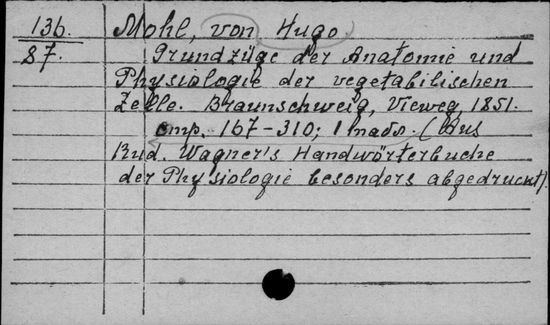 136. Mohl, von Hugo.
87. Grundzüge der Anatomie und
Physiologie der vegetabilischen
Zelle. Braunschweig, Vieweg, 1851.
стр. 167-310; 1 табл. (Aus
Rud. Wagner's Handwörterbuche
der Physiologie besonders abgedruckt).